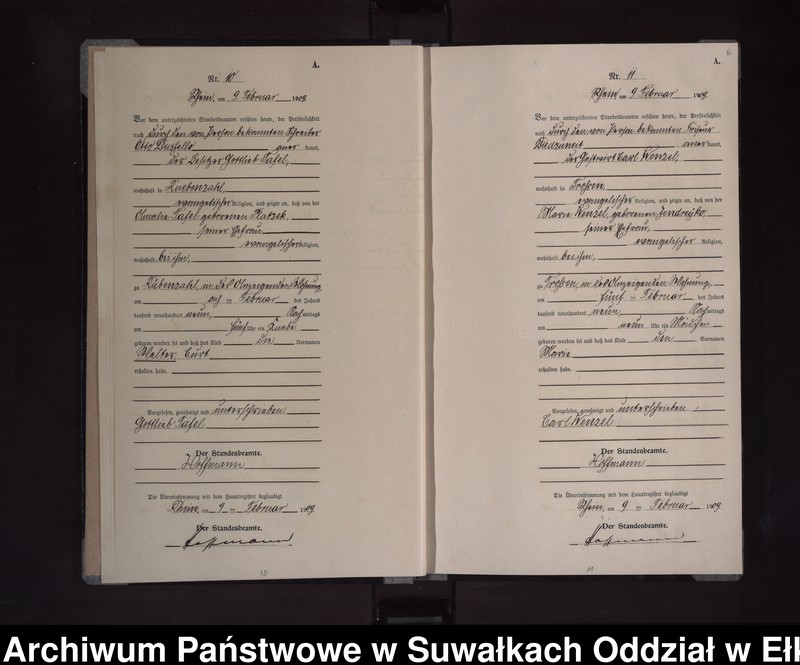 A.
Nr. 10
Rhein, am 9 Februar 1909
Vor dem unterzeichneten Standesbeamten erschien heute, der Persönlichkeit
nach durch den von Person bekannten Schreiber
Otto kannt,
der Besitzer Gottlieb Tafel,
wohnhaft in
evangelischer Religion, und zeigte an, daß von der
Amalie Tafel geborenen
seiner Ehefrau,
evangelischer Religion,
wohnhaft bei ihm,
zu Rübenzahl, in des Anzeigenden Wohnung,
am Februar des Jahres
tausend neunhundert neun, Nachmittags
um fünf Uhr ein Knabe
geboren worden sei und daß das Kind die Vornamen
Walter Curt
erhalten habe.
Vorgelesen, genehmigt und unterschrieben
Gottlieb Tafel
Der Standesbeamte.
Hoffmann
Die Übereinstimmung mit dem Hauptregister beglaubigt
Rhein, am 9 ten Februar 1909
Der Standesbeamte.
Hoffmann
10
6
A.
Nr. 11
Rhein, am 9 Februar 1909
Vor dem unterzeichneten Standesbeamten erschien heute, der Persönlichkeit
nach durch den von Person bekannten Friseur
kannt,
der Gastwirt Carl Wenzel,
wohnhaft in Trossen,
evangelischer Religion, und zeigte an, daß von der
Marie Wenzel geborenen
seiner Ehefrau,
evangelischer Religion,
wohnhaft bei ihm,
zu Trossen, in des Anzeigenden Wohnung,
am fünf ten Februar des Jahres
tausend neunhundert neun, Nachmittags
um neun Uhr ein Mädchen
geboren worden sei und daß das Kind den Vornamen
Marie
erhalten habe.
Vorgelesen, genehmigt und unterschrieben
Carl Wenzel
Der Standesbeamte.
Hoffmann
Die Übereinstimmung mit dem Hauptregister beglaubigt
Rhein, am 9 ten Februar 1909
Der Standesbeamte.
Hoffmann
11
Archiwum Państwowe w Suwałkach Oddział w Ełk